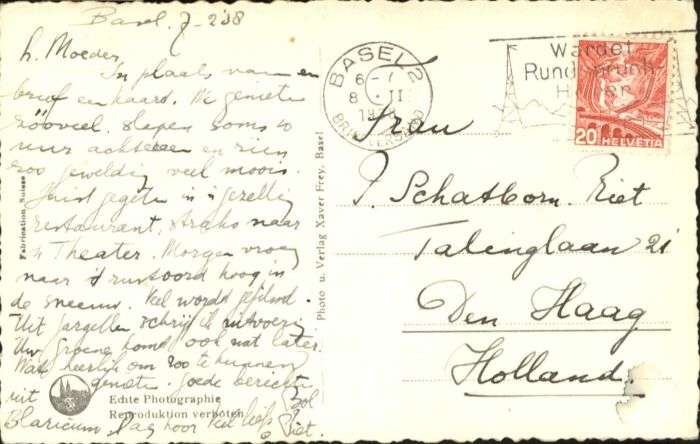 Basel. 7-2'38
L. Moeder,
In plaats van een
brief een kaart. We genieten
zóóveel. Slapen soms 10
uur achtereen en zien
zoo geweldig veel moois.
Juist gegeten in 'n gezellig
restaurant, straks naar
't Theater. Morgen vroeg
naar 't rustoord hoog in
de sneeuw. Veel wordt gefilmd.
Uit schrijf ik uitvoerig
Uw groene komt ook wat later.
Wat heerlijk om zoo te kunnen
genieten. Goede berichten
uit
Blaricum. Dag hoor veel liefs
Piet.
Echte Photographie
Reproduktion verboten
Fabrication Suisse
Photo u. Verlag Xaver Frey, Basel
BASEL 2
6-
8. II
BRIEFVERSAND
Werdet
Rundspruch
Hörer
20 HELVETIA
Frau
P. Schatborn-Piet
Talinglaan 21
Den Haag
Holland.